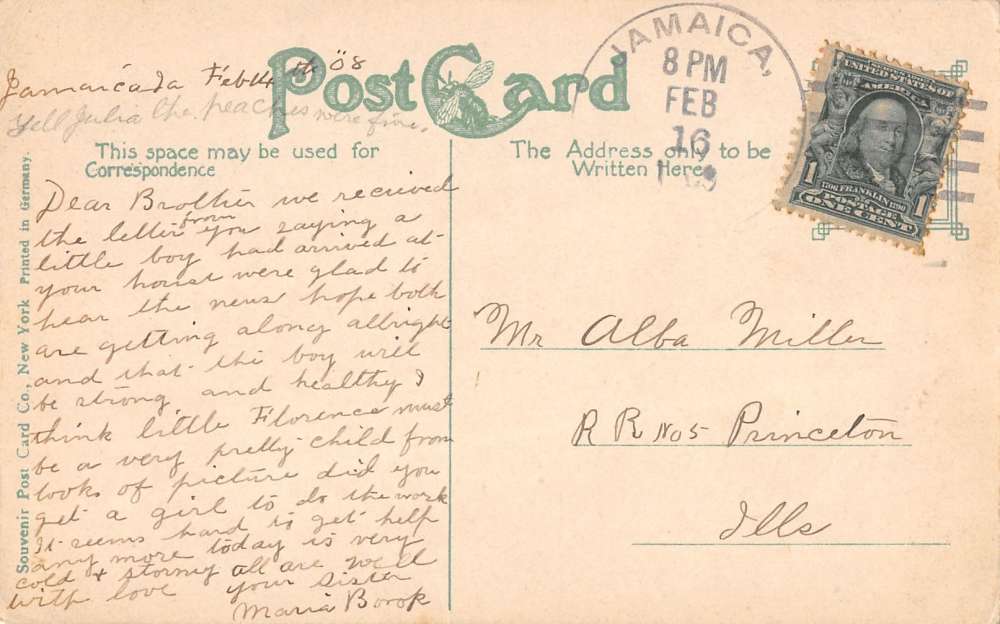 Jamaica Ia Feb 14 th 08
Tell Julia the peaches were fine.
Post Card
This space may be used for
Correspondence
The Address only to be
Written Here
JAMAICA,
8 PM
FEB
16
SERIES 1902
UNITED STATES OF
AMERICA
1706 FRANKLIN 1790
POSTAGE
1 ONE CENT 1
Souvenir Post Card Co., New York Printed in Germany.
Dear Brother we recieved
the letter from you saying a
little boy had arrived at
your house were glad to
hear the news hope both
are getting along allright
and that the boy will
be strong and healthy I
think little Florence must
be a very pretty child from
looks of picture did you
get a girl to do the work
it seems hard to get help
any more today is very
cold + stormy all are well
with love your sister
Maria Borok
Mr Alba Miller
R R No 5 Princeton
Ills